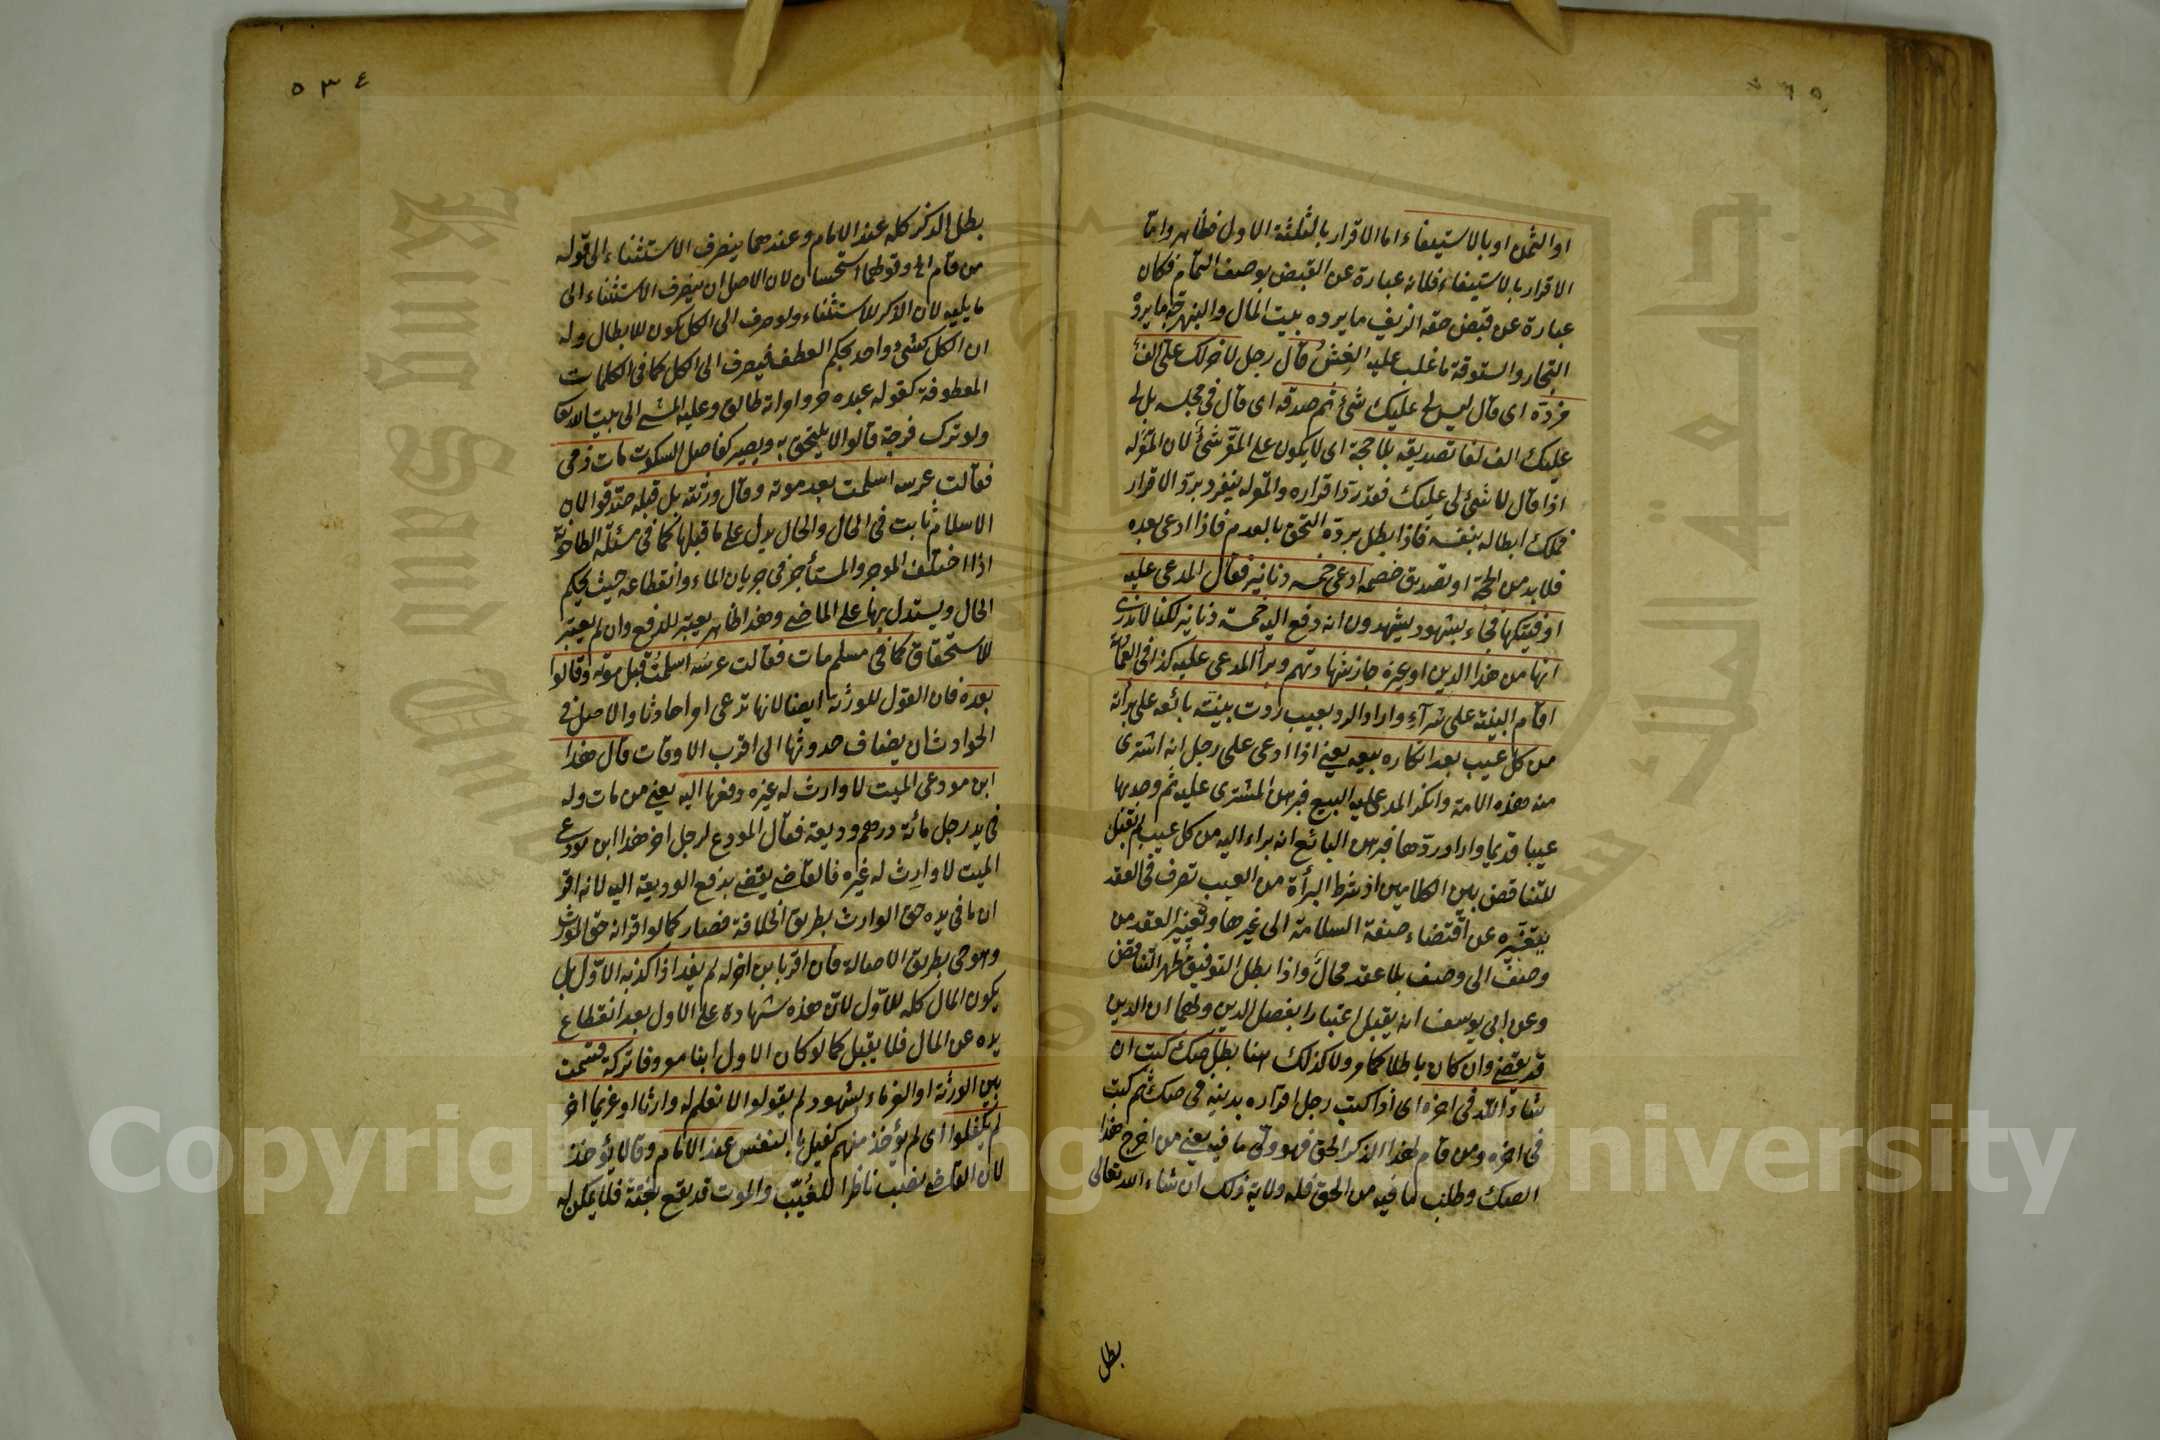 او الثمن او بالاستيفاء اما الاقرار بالثلثة الاول فظاهر واما
الاقرار بالاستيفاء فلانه عبارة عن القبض بوصف التمام فكان
عبارة عن قبض حقه الزيف ما يرده بيت المال والبنهرجة ما يرده
التجار والستوقة ما غلب عليه الغش قال رجل لاخر لك علىّ الف
فردّه اى قال ليس لى عليك شئ ثم صدقه اى قال فى مجلسه بل لى
عليك الف لغا تصديقه بلا حجة اى لا يكون على المقر شئ لان المقر له
اذا قال لا شئ لى عليك فقد ردّ اقراره والمقر له ينفرد بردّ الاقرار
فملك ابطاله بنفسه فاذا بطل بردّه التحق بالعدم فاذا ادعى بعده
فلا بد من الحجة او تصديق خصمه ادعى خمسه دنانير فقال المدعى عليه
اوفيتكها فجاء بشهود يشهدون انه دفع اليه خمسة دنانير لكنا لا ندرى
انها من هذا الدين او غيره جاز شهادتهم وبرأ المدعى عليه كذا فى
اقام البينة على شرآء واراد الرد بعيب ردت بينة بائعه على برأته
من كل عيب بعد انكاره بيعه يعنى اذا ادعى على رجل انه اشترى
منه هذه الامة وانكر المدعى عليه البيع فبرهن المشترى عليه ثم وجد بها
عيبا قديما واراد ردّها فبرهن البائع انه براء اليه من كل عيب لم تقبل
للتناقض بين الكلامين اذ شرط البرأة من العيب تصرف فى العقد
بتغييره عن اقتضاء صفة السلامة الى غيرها وتغيير العقد من
وصف الى وصف بلا عقد محال واذا بطل التوفيق ظهر التناقض
وعن ابى يوسف انه يقبل اعتبارا بفصل الدين ولهما ان الدين
قد يقضى وان كان باطلا كما مر ولا كذلك هنا بطل صك كتب ان
شاء الله فى اخره اى اذا كتب رجل اقراره بدينه فى صك ثم كتب
فى اخره ومن قام بهذا الذكر الحق فهو ولى ما فيه يعنى من اخرج هذا
الصك وطلب ما فيه من الحق فله ولاية ذلك ان شاء الله تعالى
بطل
٥٣٤
بطل الذكر كله عند الامام وعندهما ينصرف الاستثناء الى قوله
من قام الخ وقولهما استحسان لان الاصل ان ينصرف الاستثناء الى
ما يليه لان الذكر للاستثناء ولو صرف الى الكل يكون للابطال وله
ان الكل كشئ واحد بحكم العطف فيصرف الى الكل كما فى الكلمات
المعطوفة كقوله عبده حر وامراته طالق وعليه المشى الى بيت الله تعا
ولو ترك فرجة قالوا لا يلتحق به ويصير كفاصل السكوت مات ذمى
فقالت عرسه اسلمت بعد موته وقال ورثته بل قبله صدقوا لان
الاسلام ثابت فى الحال والحال يدل على ما قبلها كما فى مسئلة الطاحونة
اذا اختلف الموجر والمستأجر فى جريان الماء وانقطاعه حيث يحكم
الحال ويستدل بها على الماضى وهذا ظاهر يعتبر للدفع وان لم يعتبر
للاستحقاق كما فى مسلم مات فقالت عرسه اسلمت قبل موته وقالوا
بعده فان القول للورثة ايضا لانها تدعى امرا حادثا والاصل فى
الحوادث ان يضاف حدوثها الى اقرب الاوقات قال هذا
ابن مودعى الميت لا وارث له غيره دفعها اليه يعنى من مات وله
فى يد رجل مائة درهم وديعة فقال المودع لرجل اخر هذا ابن مودعى
الميت لا وارث له غيره فالقاضى يقضى بدفع الوديعة اليه لانه اقر
ان ما فى يده حق الوارث بطريق الخلافة فصار كما لو اقر انه حق المورث
وهو حى بطريق الاصالة فان اقر بابن اخر له لم يفد اذا كذبه الاول بل
يكون المال كله للاول لان هذه شهادة على الاول بعد انقطاع
يده عن المال فلا يقبل كما لو كان الاول ابنا معروفا تركة قسمت
بين الورثة او الغرماء بشهود لم يقولوا لا نعلم له وارثا او غريما اخر
لم يكفلوا اى لم يؤخذ منهم كفيل بالنفس عند الامام وقالا يؤخذ
لان القاضى نصب ناظرا للغيّب والموت قد يقع بغتة فلا يمكن له
King Saud University
جامعة الملك سعود
Copyright © King Saud University